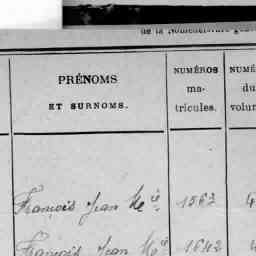 de la Nomenclature
PRÉNOMS
ET SURNOMS.
NUMÉROS
ma-
tricules.
NUMÉ
du
volum
François Jean Mie 1567 4
François Jean Mie 1642 4